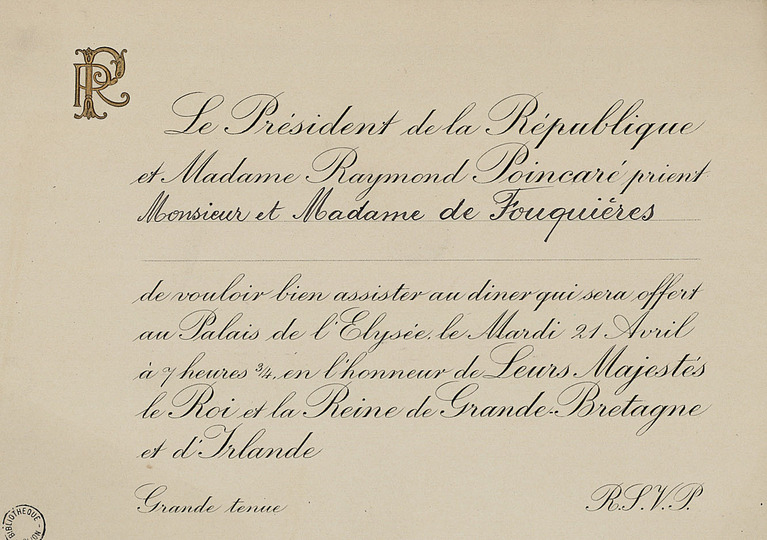 RP
Le Président de la République
et Madame Raymond Poincaré prient
Monsieur et Madame de Fouquières
de vouloir bien assister au diner qui sera offert
au Palais de l'Elysée, le Mardi 21 Avril
à 7 heures 3/4, en l'honneur de Leurs Majestés
le Roi et la Reine de Grande-Bretagne
et d'Irlande
Grande tenue
R.S.V.P.
BIBLIOTHEQUE